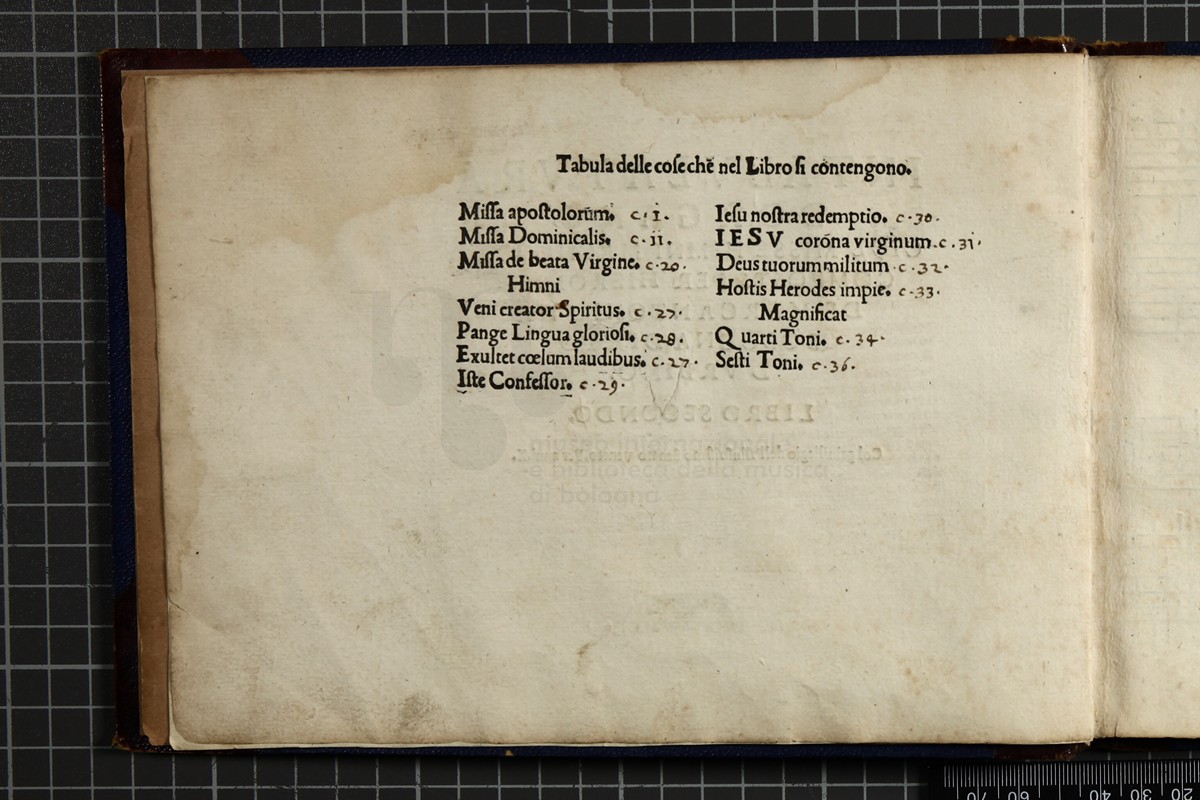 Tabula delle cose chē nel Libro si contengono.
Missa apostolorūm. c. 1.
Missa Dominicalis. c. 11.
Missa de beata Virgine. c. 20.
Himni
Veni creator Spiritus. c. 27.
Pange Lingua gloriosi. c. 28.
Exultet cœlum laudibus. c. 27.
Iste Confessor. c. 29.
Iesu nostra redemptio. c. 30.
IESV corōna virginum. c. 31.
Deus tuorum militum. c. 32.
Hostis Herodes impie. c. 33.
Magnificat
Quarti Toni. c. 34.
Sesti Toni. c. 36.
LIBRO SECONDO.
museo internazionale
e biblioteca della musica
di bologna
70 60 40 30 20